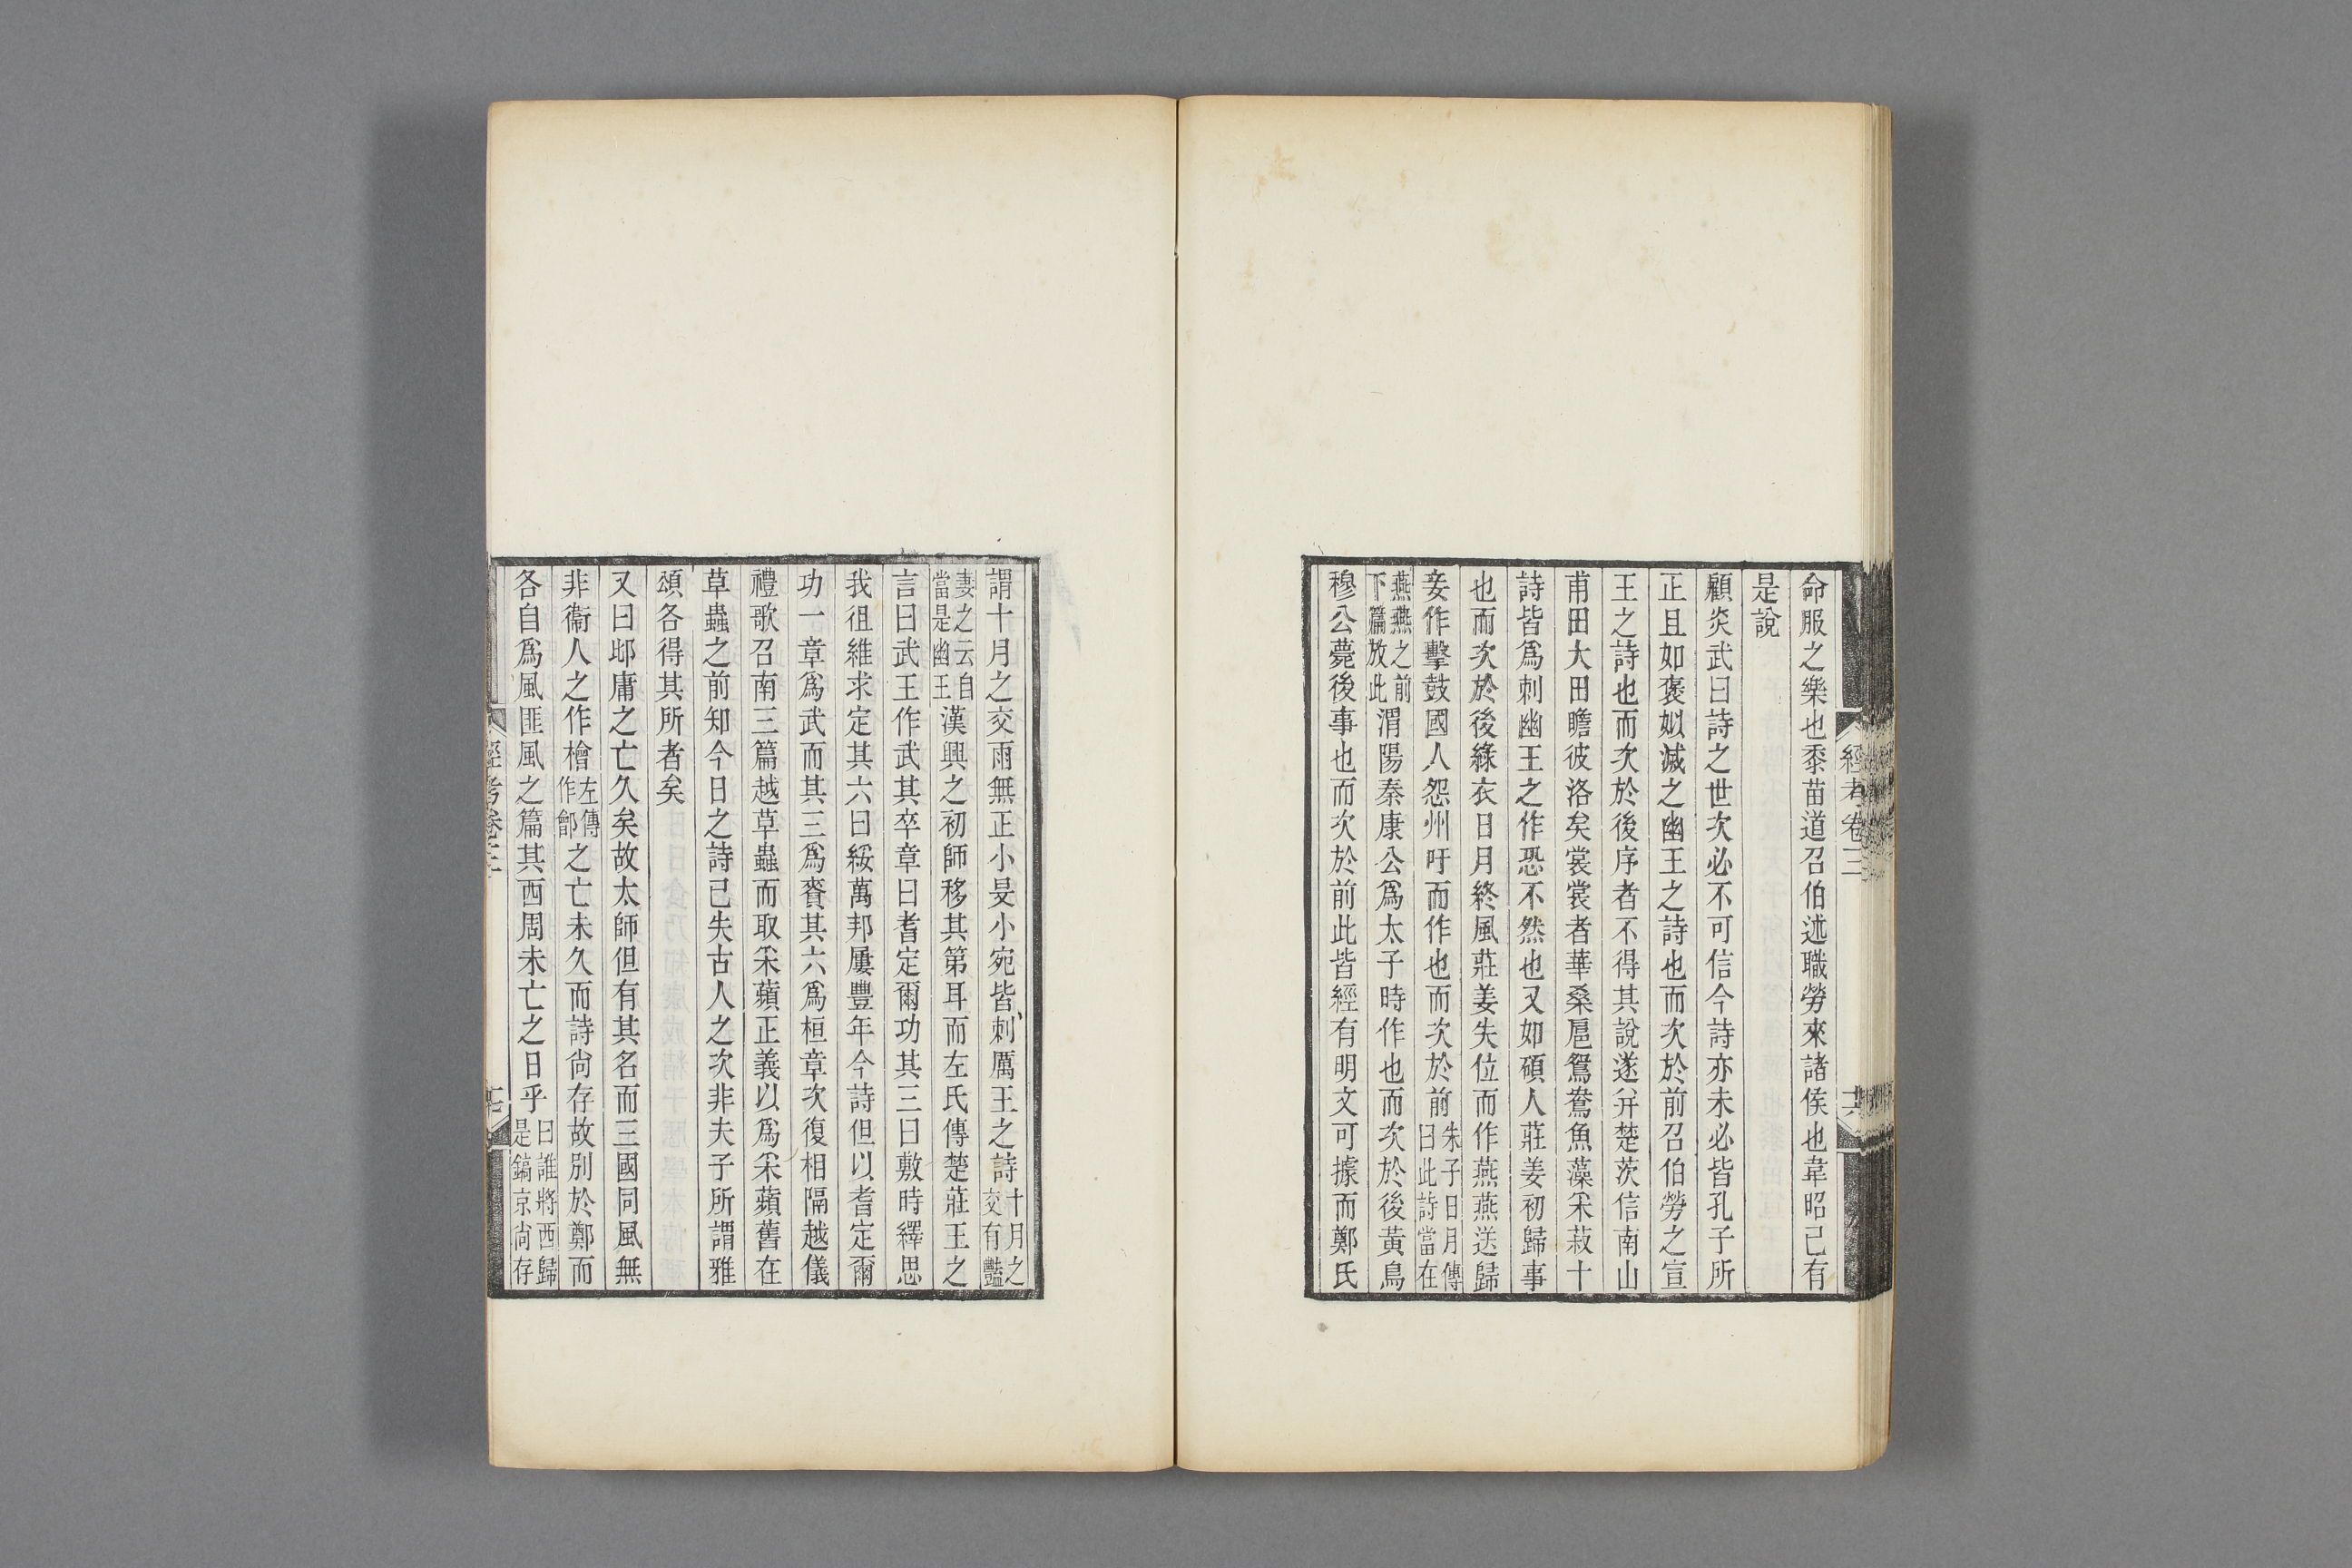 經考卷三
十六
命服之樂也黍苗道召伯述職勞來諸侯也韋昭已有
是說
顧炎武曰詩之世次必不可信今詩亦未必皆孔子所
正且如褒姒滅之幽王之詩也而次於前召伯勞之宣
王之詩也而次於後序者不得其說遂并楚茨信南山
甫田大田瞻彼洛矣裳裳者華桑扈鴛鴦魚藻采菽十
詩皆爲刺幽王之作恐不然也又如碩人莊姜初歸事
也而次於後綠衣日月終風莊姜失位而作燕燕送歸
妾作擊鼓國人怨州吁而作也而次於前朱子日月傳曰此詩當在
燕燕之前下篇放此渭陽秦康公爲太子時作也而次於後黃鳥
穆公薨後事也而次於前此皆經有明文可據而鄭氏
謂十月之交雨無正小旻小宛皆刺厲王之詩十月之交有豔
妻之云自當是幽王漢興之初師移其第耳而左氏傳楚莊王之
言曰武王作武其卒章曰耆定爾功其三曰敷時繹思
我徂維求定其六曰綏萬邦屢豐年今詩但以耆定爾
功一章爲武而其三爲賚其六爲桓章次復相隔越儀
禮歌召南三篇越草蟲而取采蘋正義以爲采蘋舊在
草蟲之前知今日之詩已失古人之次非夫子所謂雅
頌各得其所者矣
又曰邶庸之亡久矣故太師但有其名而三國同風無
非衞人之作檜左傳作鄶之亡未久而詩尚存故別於鄭而
各自爲風匪風之篇其西周未亡之日乎曰誰將西歸是鎬京尚存
經考卷三